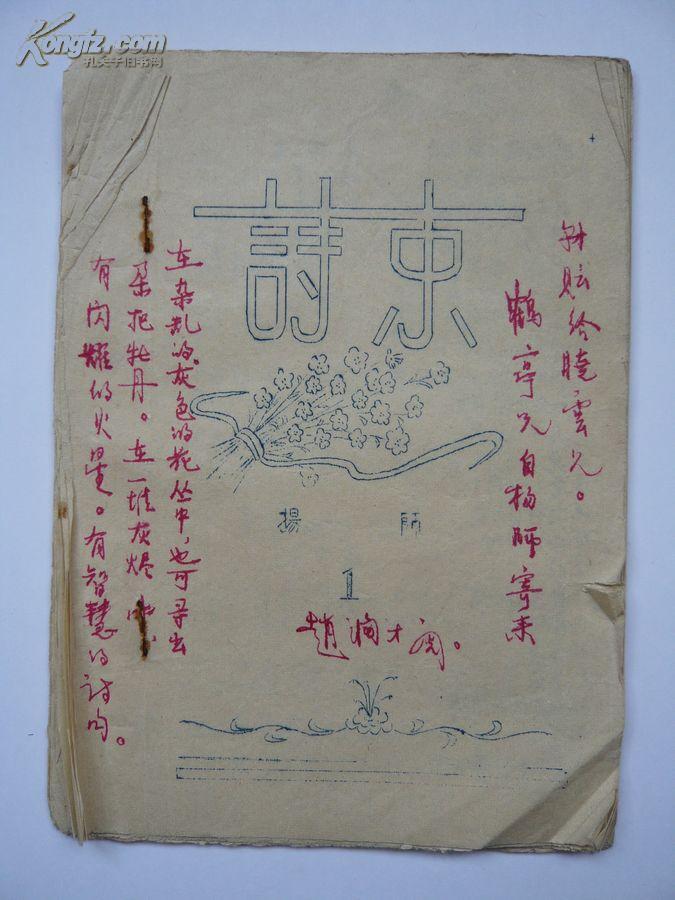 Kongfz.com
孔夫子旧书网
詩束
揚師
1
转贻给晓云兄。
鹤亭兄自扬师寄来
赵润才阅。
在杂乱的灰色的花丛中,也可寻出
朵把牡丹。在一堆灰烬中、
有闪耀的火星。有智慧的诗句。